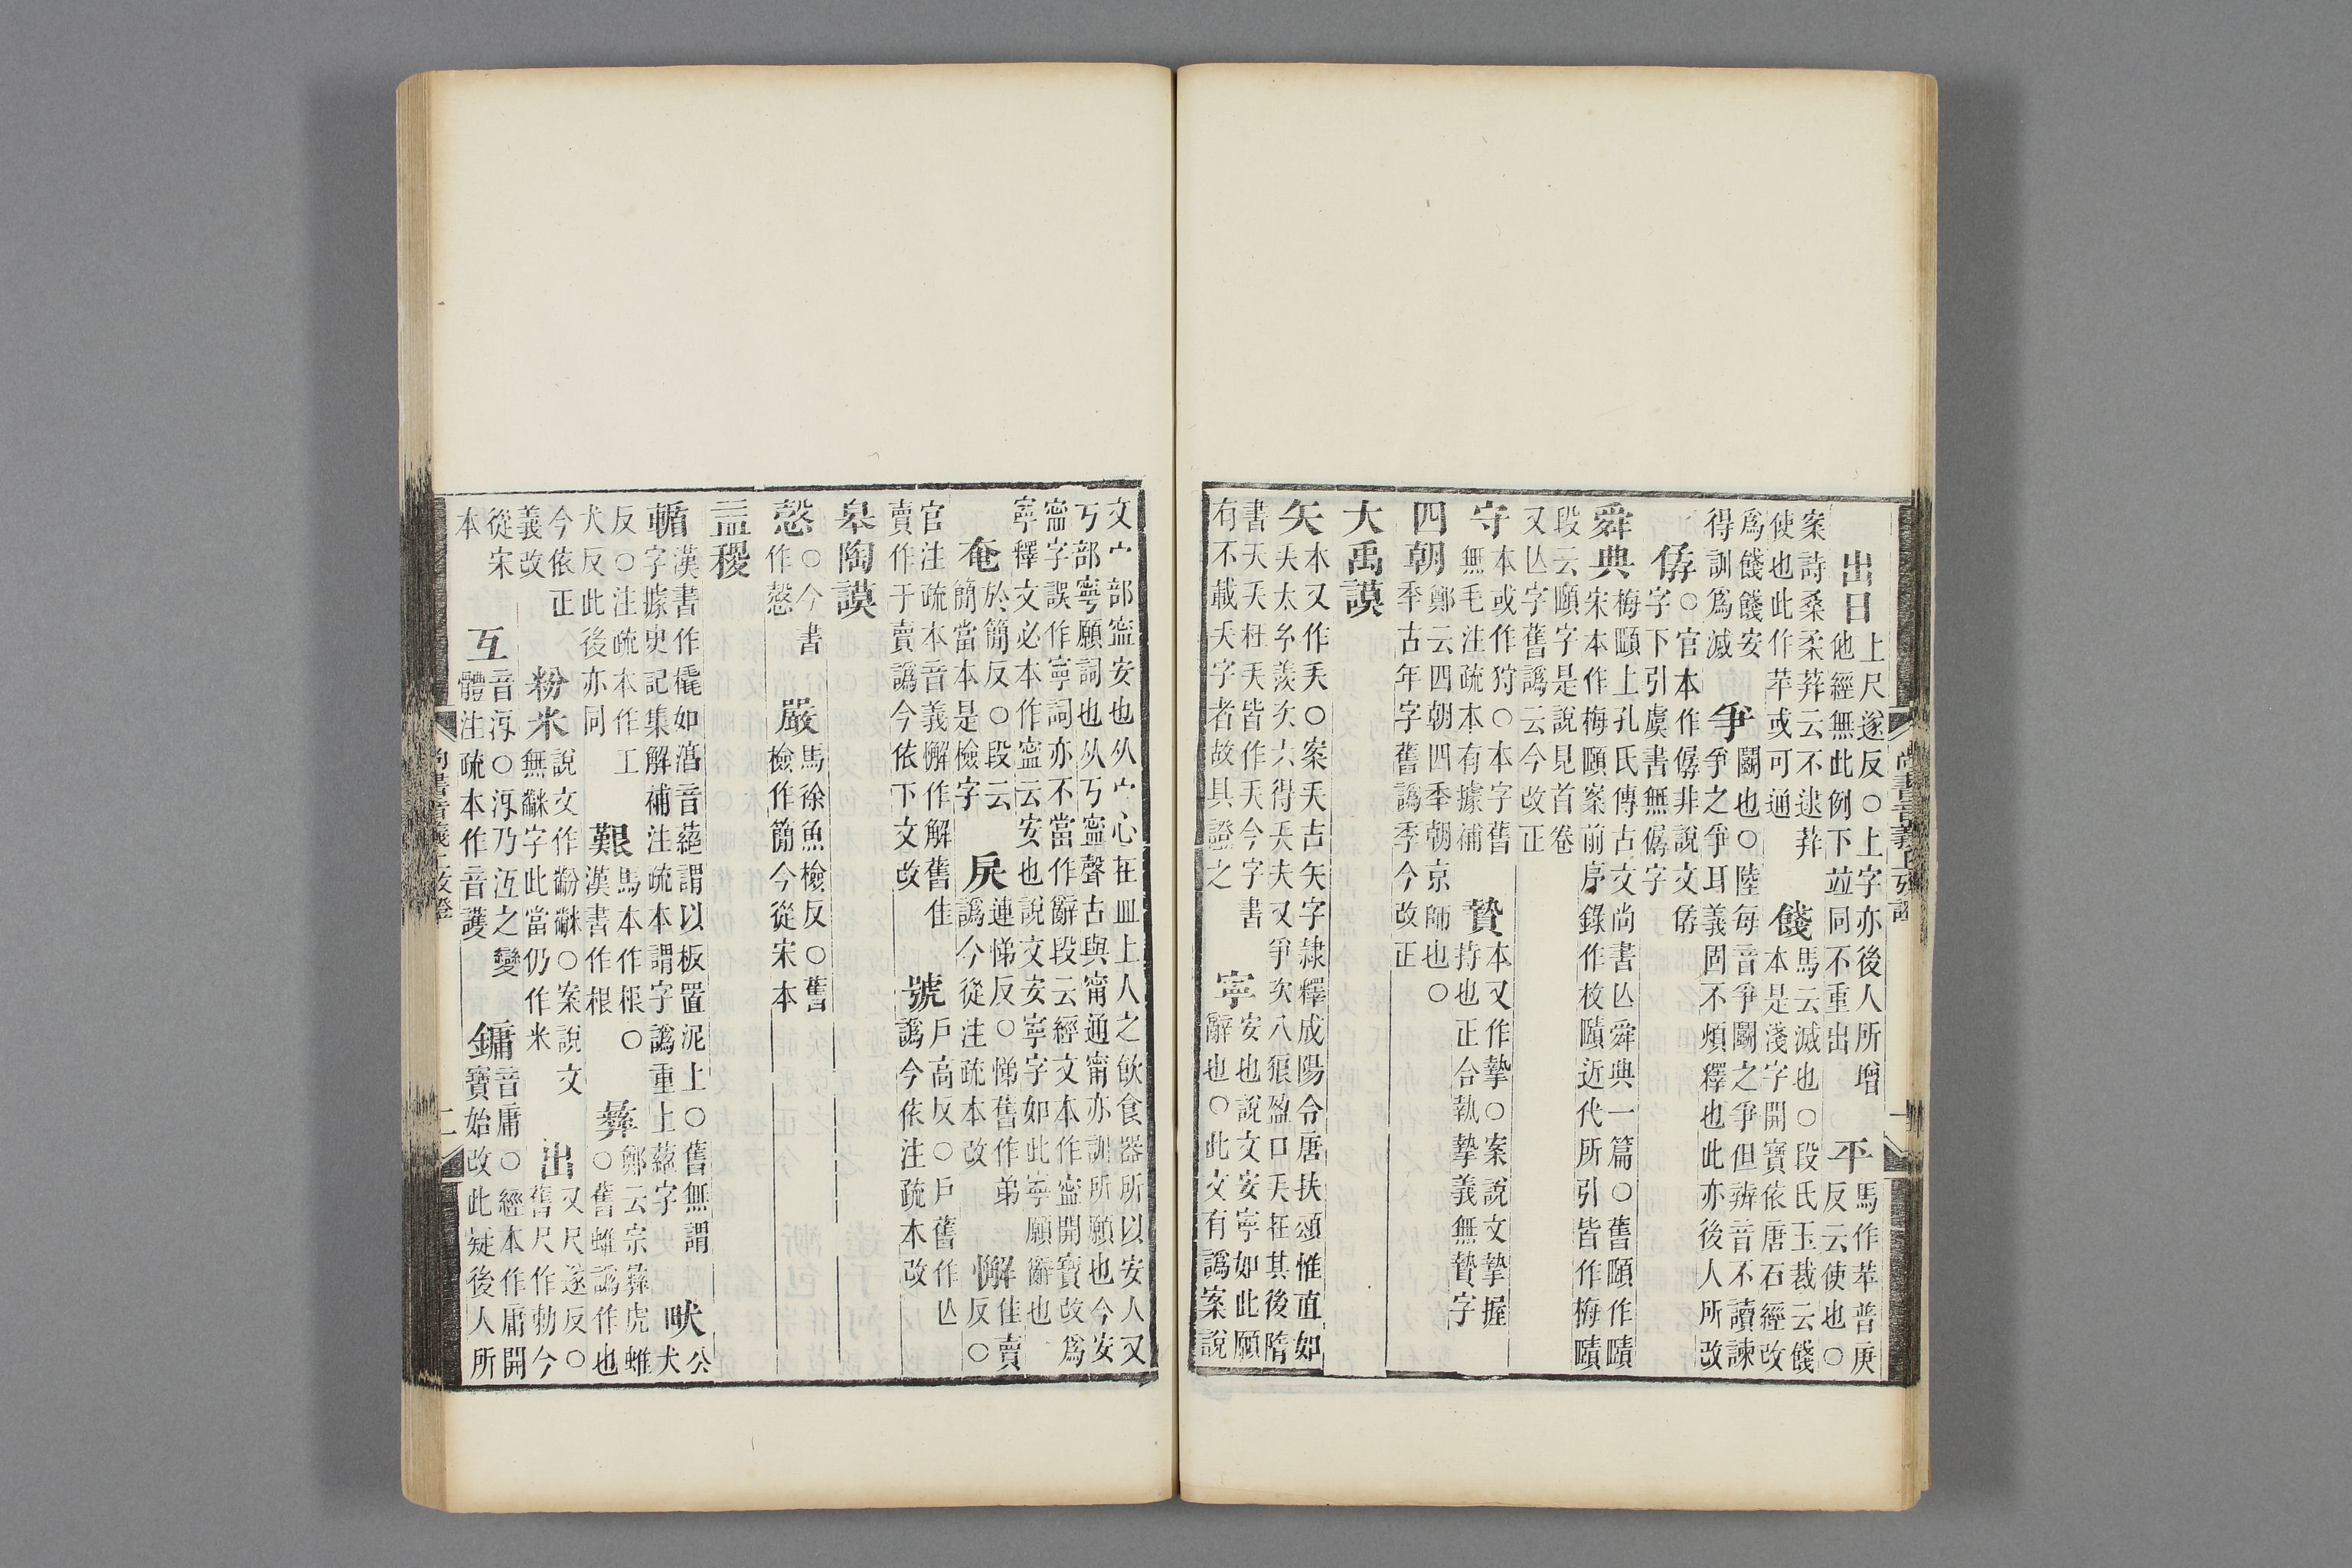 出日上尺遂反○上字亦後人所增
他經無此例下竝同不重出
平馬作苹普庚
反云使也○
案詩桑柔荓云不逮荓
使也此作苹或可通
餞馬云滅也○段氏玉裁云餞
本是淺字開寶依唐石經改
爲餞餞安
得訓爲滅
爭鬭也○陸每音爭鬭之爭但辨音不讀諫
爭之爭耳義固不煩釋也此亦後人所改
㑉○官本作僝非說文㑉
字下引虞書無僝字
舜典梅頤上孔氏傳古文尚書亾舜典一篇○舊頤作賾
宋本作梅頤案前序錄作枚賾近代所引皆作梅賾
段云頤字是說見首卷
又亾字舊譌云今改正
守本或作狩○本字舊
無毛注疏本有據補
贄本又作摯○案說文摯握
持也正合執摯義無贄字
四朝鄭云四朝四季朝京師也○
季古年字舊譌季今改正
大禹謨
矢本又作𠂕○案𠂕古矢字隷釋成陽令唐扶頌惟直如
有不載𠂕字者故具證之
寧安也說文安寧如此願
辭也○此文有譌案說
文宀部寍安也从宀心在皿上人之飮食器所以安人又
丂部寧願詞也从丂寍聲古與甯通甯亦訓所願也今安
甯字誤作寧詞亦不當作辭段云經文本作寍開寶改爲
寧釋文必本作寍云安也說文安寧字如此寧願辭也
奄於簡反○段云
簡當本是檢字
戾連悌反○悌舊作弟
譌今從注疏本改
懈佳賣
反○
官注疏本音義懈作解舊佳
賣作于賣譌今依下文改
號戶高反○戶舊作亾
譌今依注疏本改
皋陶謨
愨○今書
作慤
嚴馬徐魚檢反○舊
檢作簡今從宋本
益稷
輴漢書作橇如湻音蕝謂以板置泥上○舊無謂
字據史記集解補注疏本謂字譌重上蕝字
畎公
犬
反○注疏本作工
犬反此後亦同
艱馬本作根○
漢書作根
彝鄭云宗彝虎蜼
○舊蜼譌作也
今依正
義改
粉米說文作黺䋛○案說文
無䋛字此當仍作米
出又尺遂反○
舊尺作勑今
從宋
本
互音冱○冱乃沍之變
體注疏本作音護
鏞音庸○經本作庸開
寶始改此疑後人所